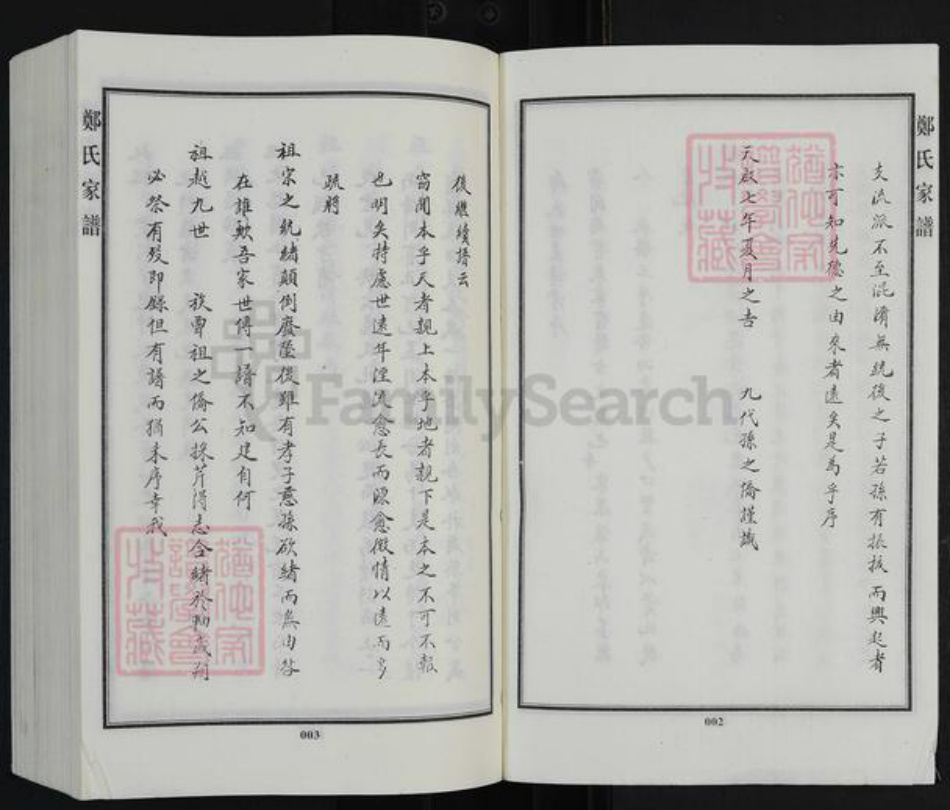 鄭氏家譜
支流派不至混淆無統後之子若孫有振拔而興起者
亦可知先德之由來者遠矣是為乎序
天啟七年夏月之吉 九代孫之僑謹識
002
後繼續搢云
窃聞本乎天者親上本乎地者親下是本之不可不報
也明矣持慮世遠年湮流愈長而源愈微情以遠而多
疏將
祖宗之統緒顛倒廢墜後雖有孝子慈孫欲緒而無由咎
在誰歟吾家世傳一譜不知建自何
祖越九世 族曾祖之僑公採芹得志合緒於 歲朔
必祭有發即錄但有譜而猶未序幸我
鄭氏家譜
003
FamilySearch